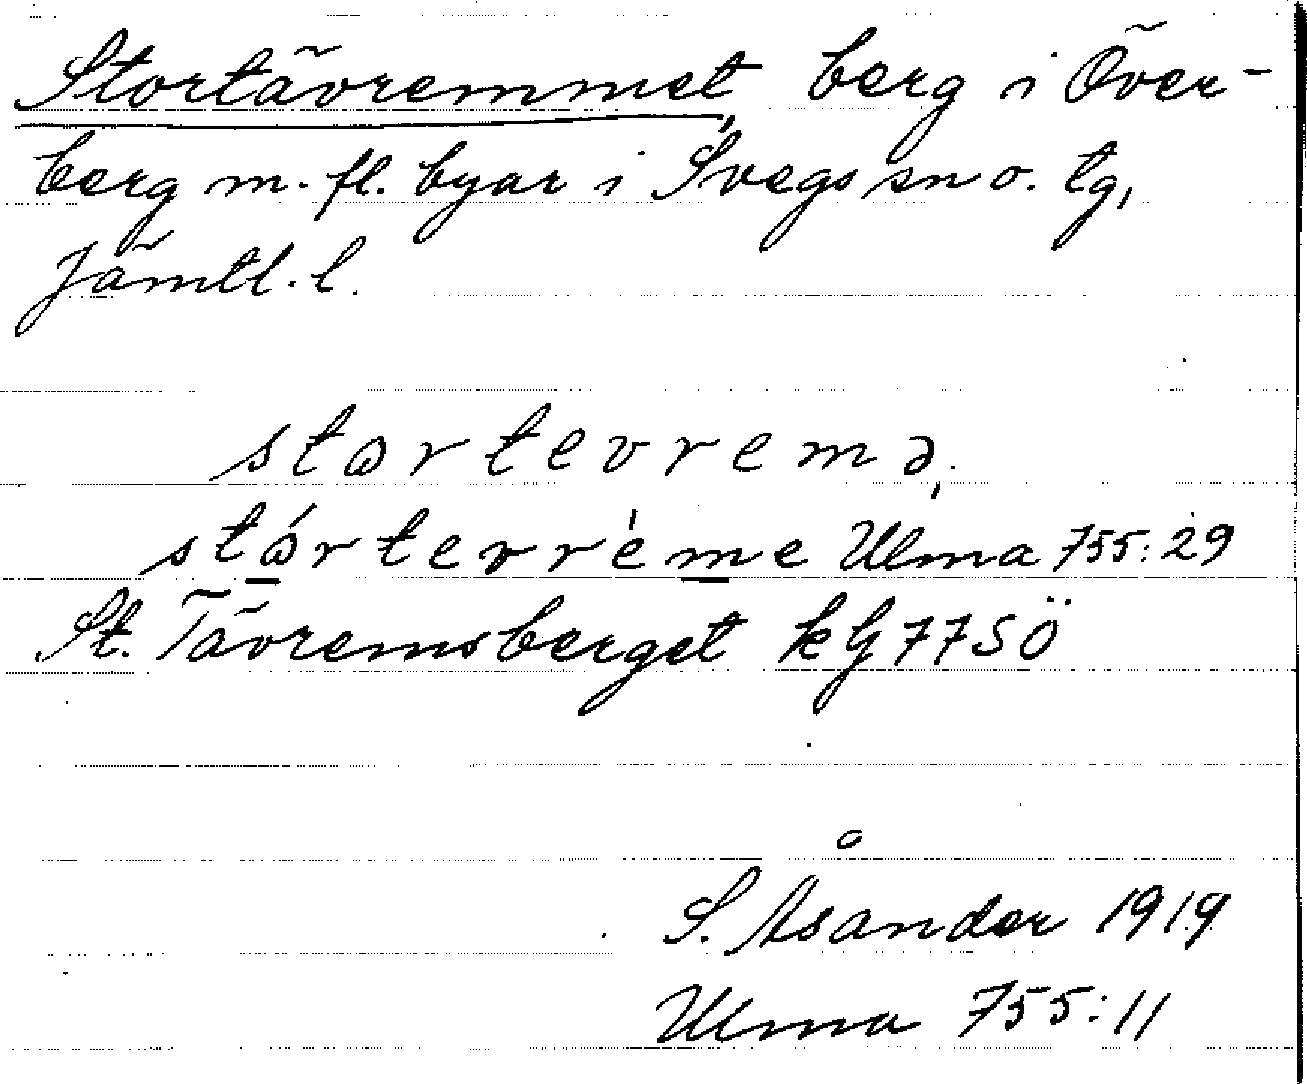 Stortävremmet, berg i Över-
berg m. fl. byar i Svegs sn o. tg,
Jämtl. l.
stortevremə,
stórterrème Ulma 755:29
St. Tävremsberget kG 77SÖ
S. Åsander 1919
Ulma 755:11